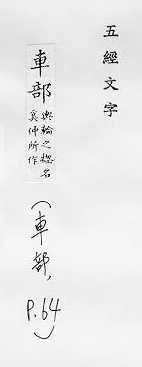 五經文字
車部 輿輪之揔名
奚仲所作
(車部,
P.64)